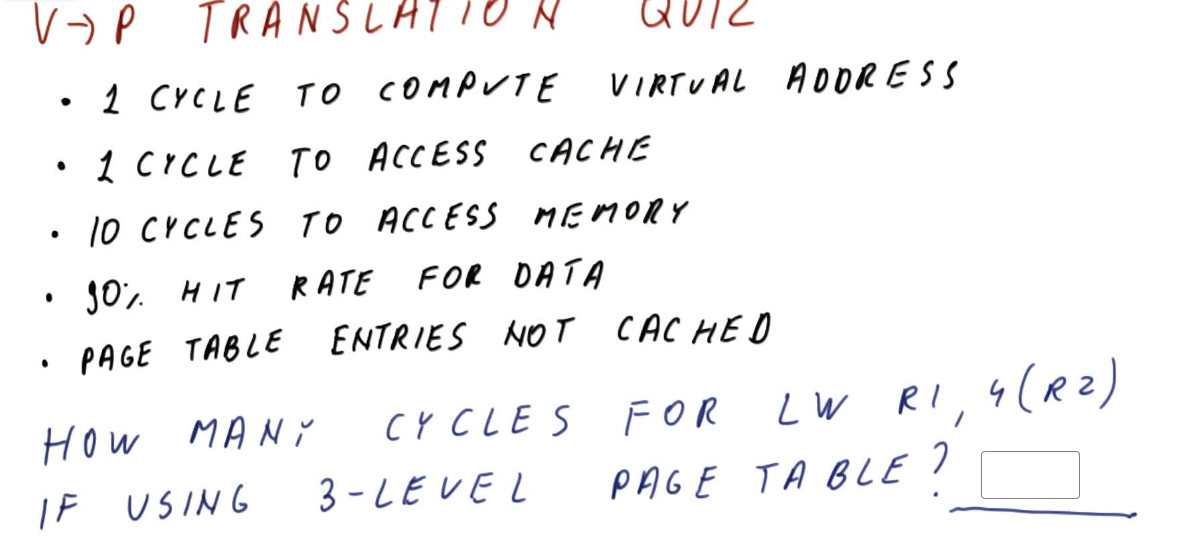 V→P TRANSLATION QUIZ
• 1 CYCLE TO COMPUTE VIRTUAL ADDRESS
• 1 CYCLE TO ACCESS CACHE
• 10 CYCLES TO ACCESS MEMORY
• 90% HIT RATE FOR DATA
• PAGE TABLE ENTRIES NOT CACHED
HOW MANY CYCLES FOR LW R1, 4(R2)
IF USING 3-LEVEL PAGE TABLE?